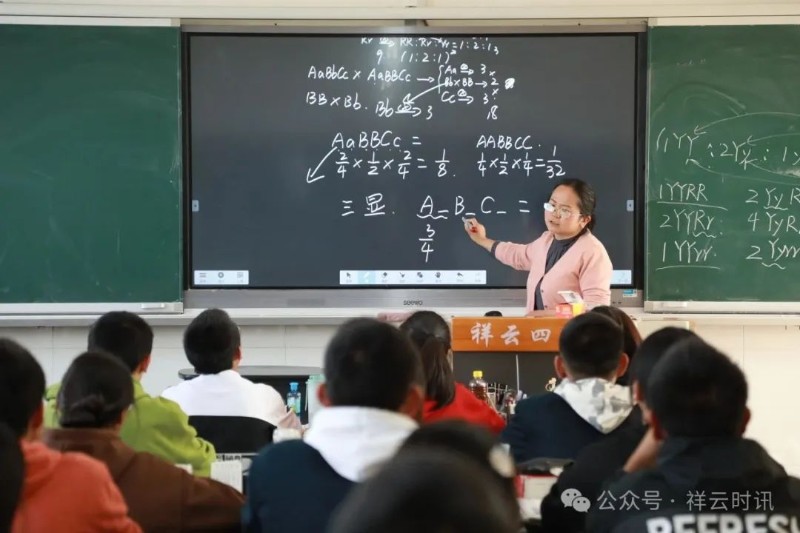 Rr → RR:Rr:rr=1:2:1
9 (1:2:1)²
AaBbCc × AaBBCc → Aa → 3
Bb×BB → 2
Cc → 3
18
BB × Bb. Bb → 3
AaBBCc =
2/4 × 1/2 × 2/4 = 1/8.
AABBCC.
1/4 × 1/2 × 1/4 = 1/32
三显. A_ B_ C_ =
3/4
(1YY : 2Yy : 1y
1YYRR
2YYRr
1YYrr
2YyR
4YyR
2Yyrr
祥云四
公众号·祥云时讯
REFRESH